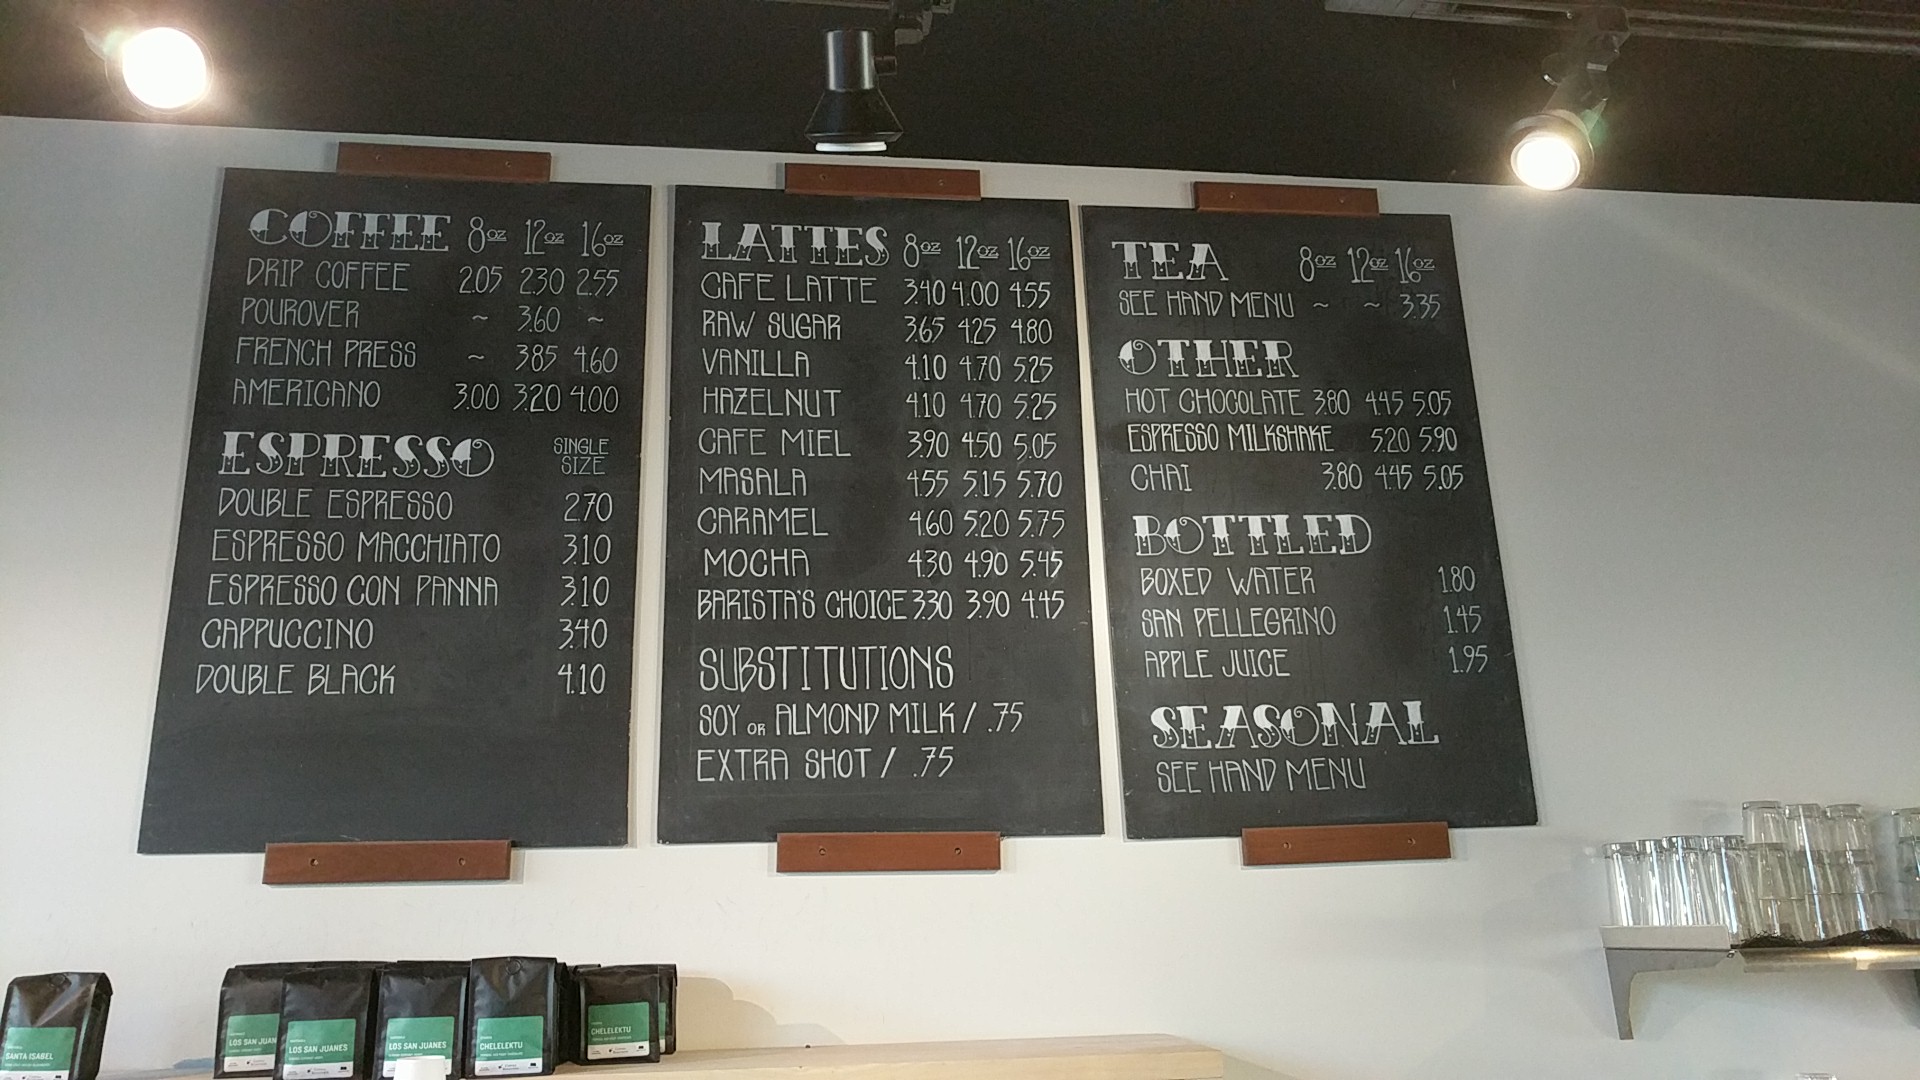 COFFEE 8oz 12oz 16oz
DRIP COFFEE 2.05 2.30 2.55
POUROVER ~ 3.60 ~
FRENCH PRESS ~ 3.85 4.60
AMERICANO 3.00 3.20 4.00
ESPRESSO SINGLE SIZE
DOUBLE ESPRESSO 2.70
ESPRESSO MACCHIATO 3.10
ESPRESSO CON PANNA 3.10
CAPPUCCINO 3.40
DOUBLE BLACK 4.10
LATTES 8oz 12oz 16oz
CAFE LATTE 3.40 4.00 4.55
RAW SUGAR 3.65 4.25 4.80
VANILLA 4.10 4.70 5.25
HAZELNUT 4.10 4.70 5.25
CAFE MIEL 3.90 4.50 5.05
MASALA 4.55 5.15 5.70
CARAMEL 4.60 5.20 5.75
MOCHA 4.30 4.90 5.45
BARISTA'S CHOICE 3.30 3.90 4.45
SUBSTITUTIONS
SOY OR ALMOND MILK / .75
EXTRA SHOT / .75
TEA 8oz 12oz 16oz
SEE HAND MENU ~ ~ 3.35
OTHER
HOT CHOCOLATE 3.80 4.45 5.05
ESPRESSO MILKSHAKE 5.20 5.90
CHAI 3.80 4.45 5.05
BOTTLED
BOXED WATER 1.80
SAN PELLEGRINO 1.45
APPLE JUICE 1.95
SEASONAL
SEE HAND MENU
SANTA ISABEL
LOS SAN JUAN
LOS SAN JUANES
LOS SAN JUANES
CHELELEKTU
CHELELEKTU